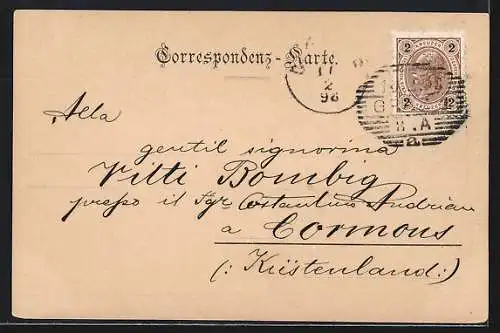 Correspondenz-Karte.
17
2
98
2 2
2 2
GR
8.A
a
Alla
gentil signorina
Vitti Bombig
presso il Sgr Costantino Andrian
a Cormons
(: Küstenland :)